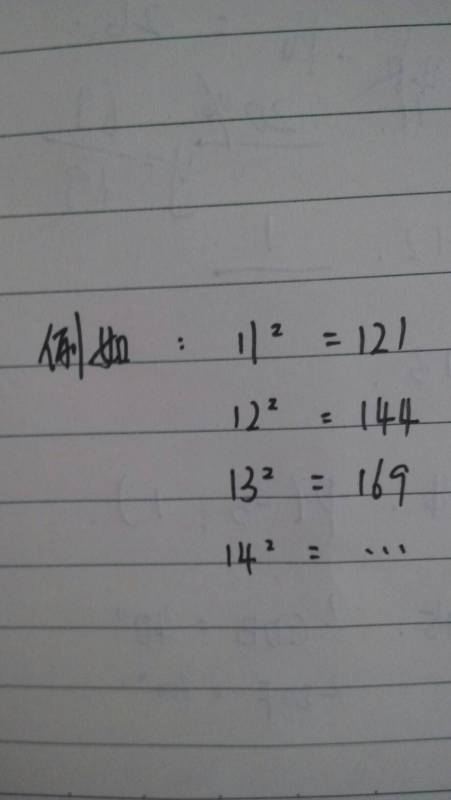 例如： 11² = 121
12² = 144
13² = 169
14² = ...